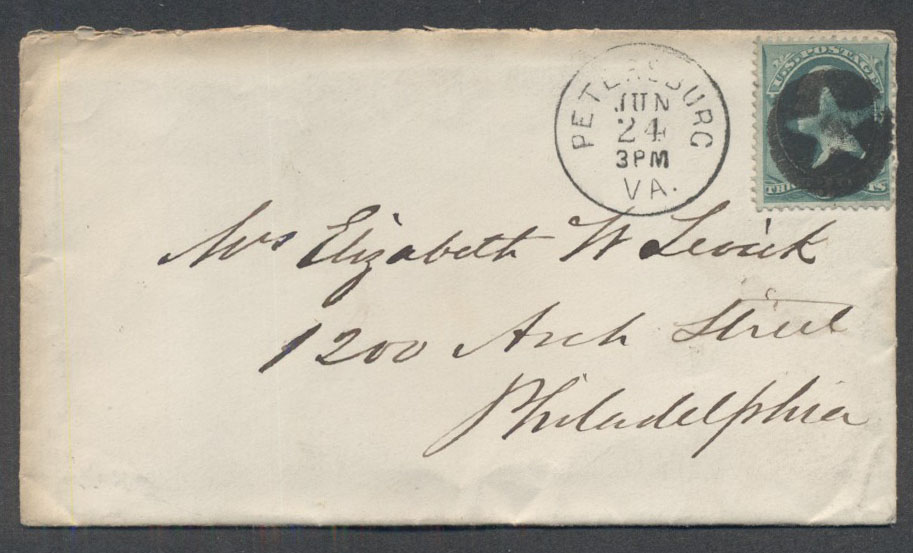 PETERSBURG
JUN
24
3PM
VA.
U.S. POSTAGE
Mrs Elizabeth W Levick
1200 Arch Street
Philadelphia